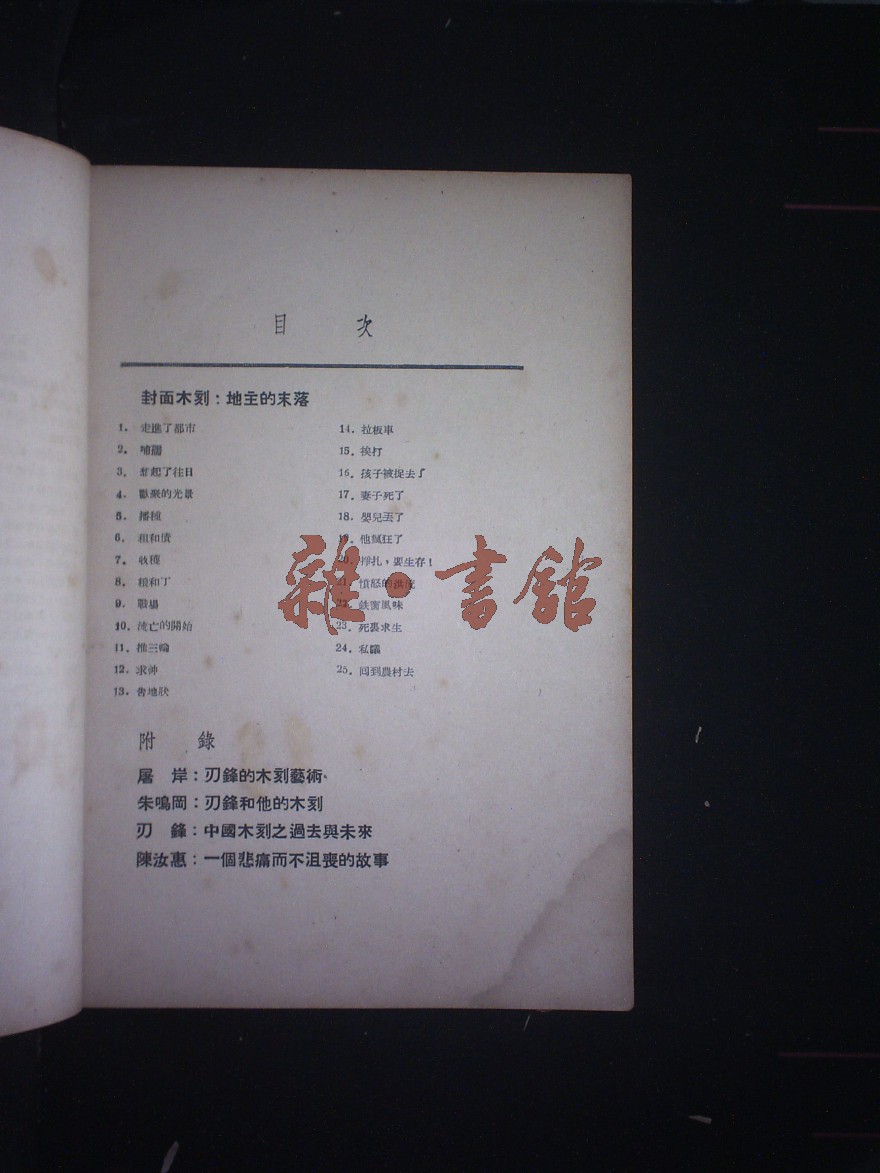 目 次
封面木刻：地主的末落
1. 走進了都市
2. 哺
3. 想起了往日
4. 歡聚的光景
5. 播種
6. 租和債
7. 收穫
8. 粮和丁
9. 戰場
10. 流亡的開始
11. 推三輪
12. 求神
13. 告地狀
14. 拉板車
15. 挨打
16. 孩子被捉去了
17. 妻子死了
18. 嬰兒丟了
19. 他瘋狂了
20. 掙扎，要生存！
21. 憤怒的洪流
22. 鉄窗風味
23. 死裏求生
24. 私議
25. 囘到農村去
附 錄
屠 岸：刃鋒的木刻藝術
朱鳴岡：刃鋒和他的木刻
刃 鋒：中國木刻之過去與未來
陳汝惠：一個悲痛而不沮喪的故事
雜·書館